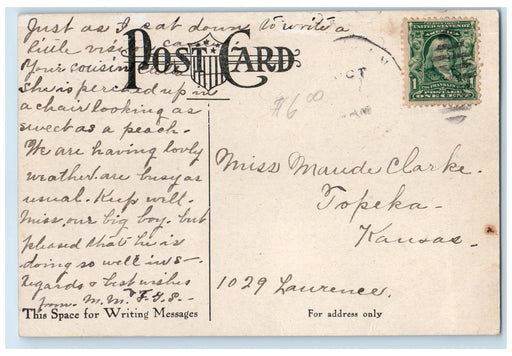 Just as I sat down to write a
little visitor came in
Your cousin
she is perched up in
a chair looking as
sweet as a peach.
We are having lovly
weather. are busy as
usual. Keep well.
Miss our big boy. but
pleased that he is
doing so well in S-
Regards & best wishes
from M.M. F.G.S-
This Space for Writing Messages
POST CARD
$6.00
OCT
Miss Maude Clarke.
Topeka-
Kansas-
1029 Lawrence.
For address only
1